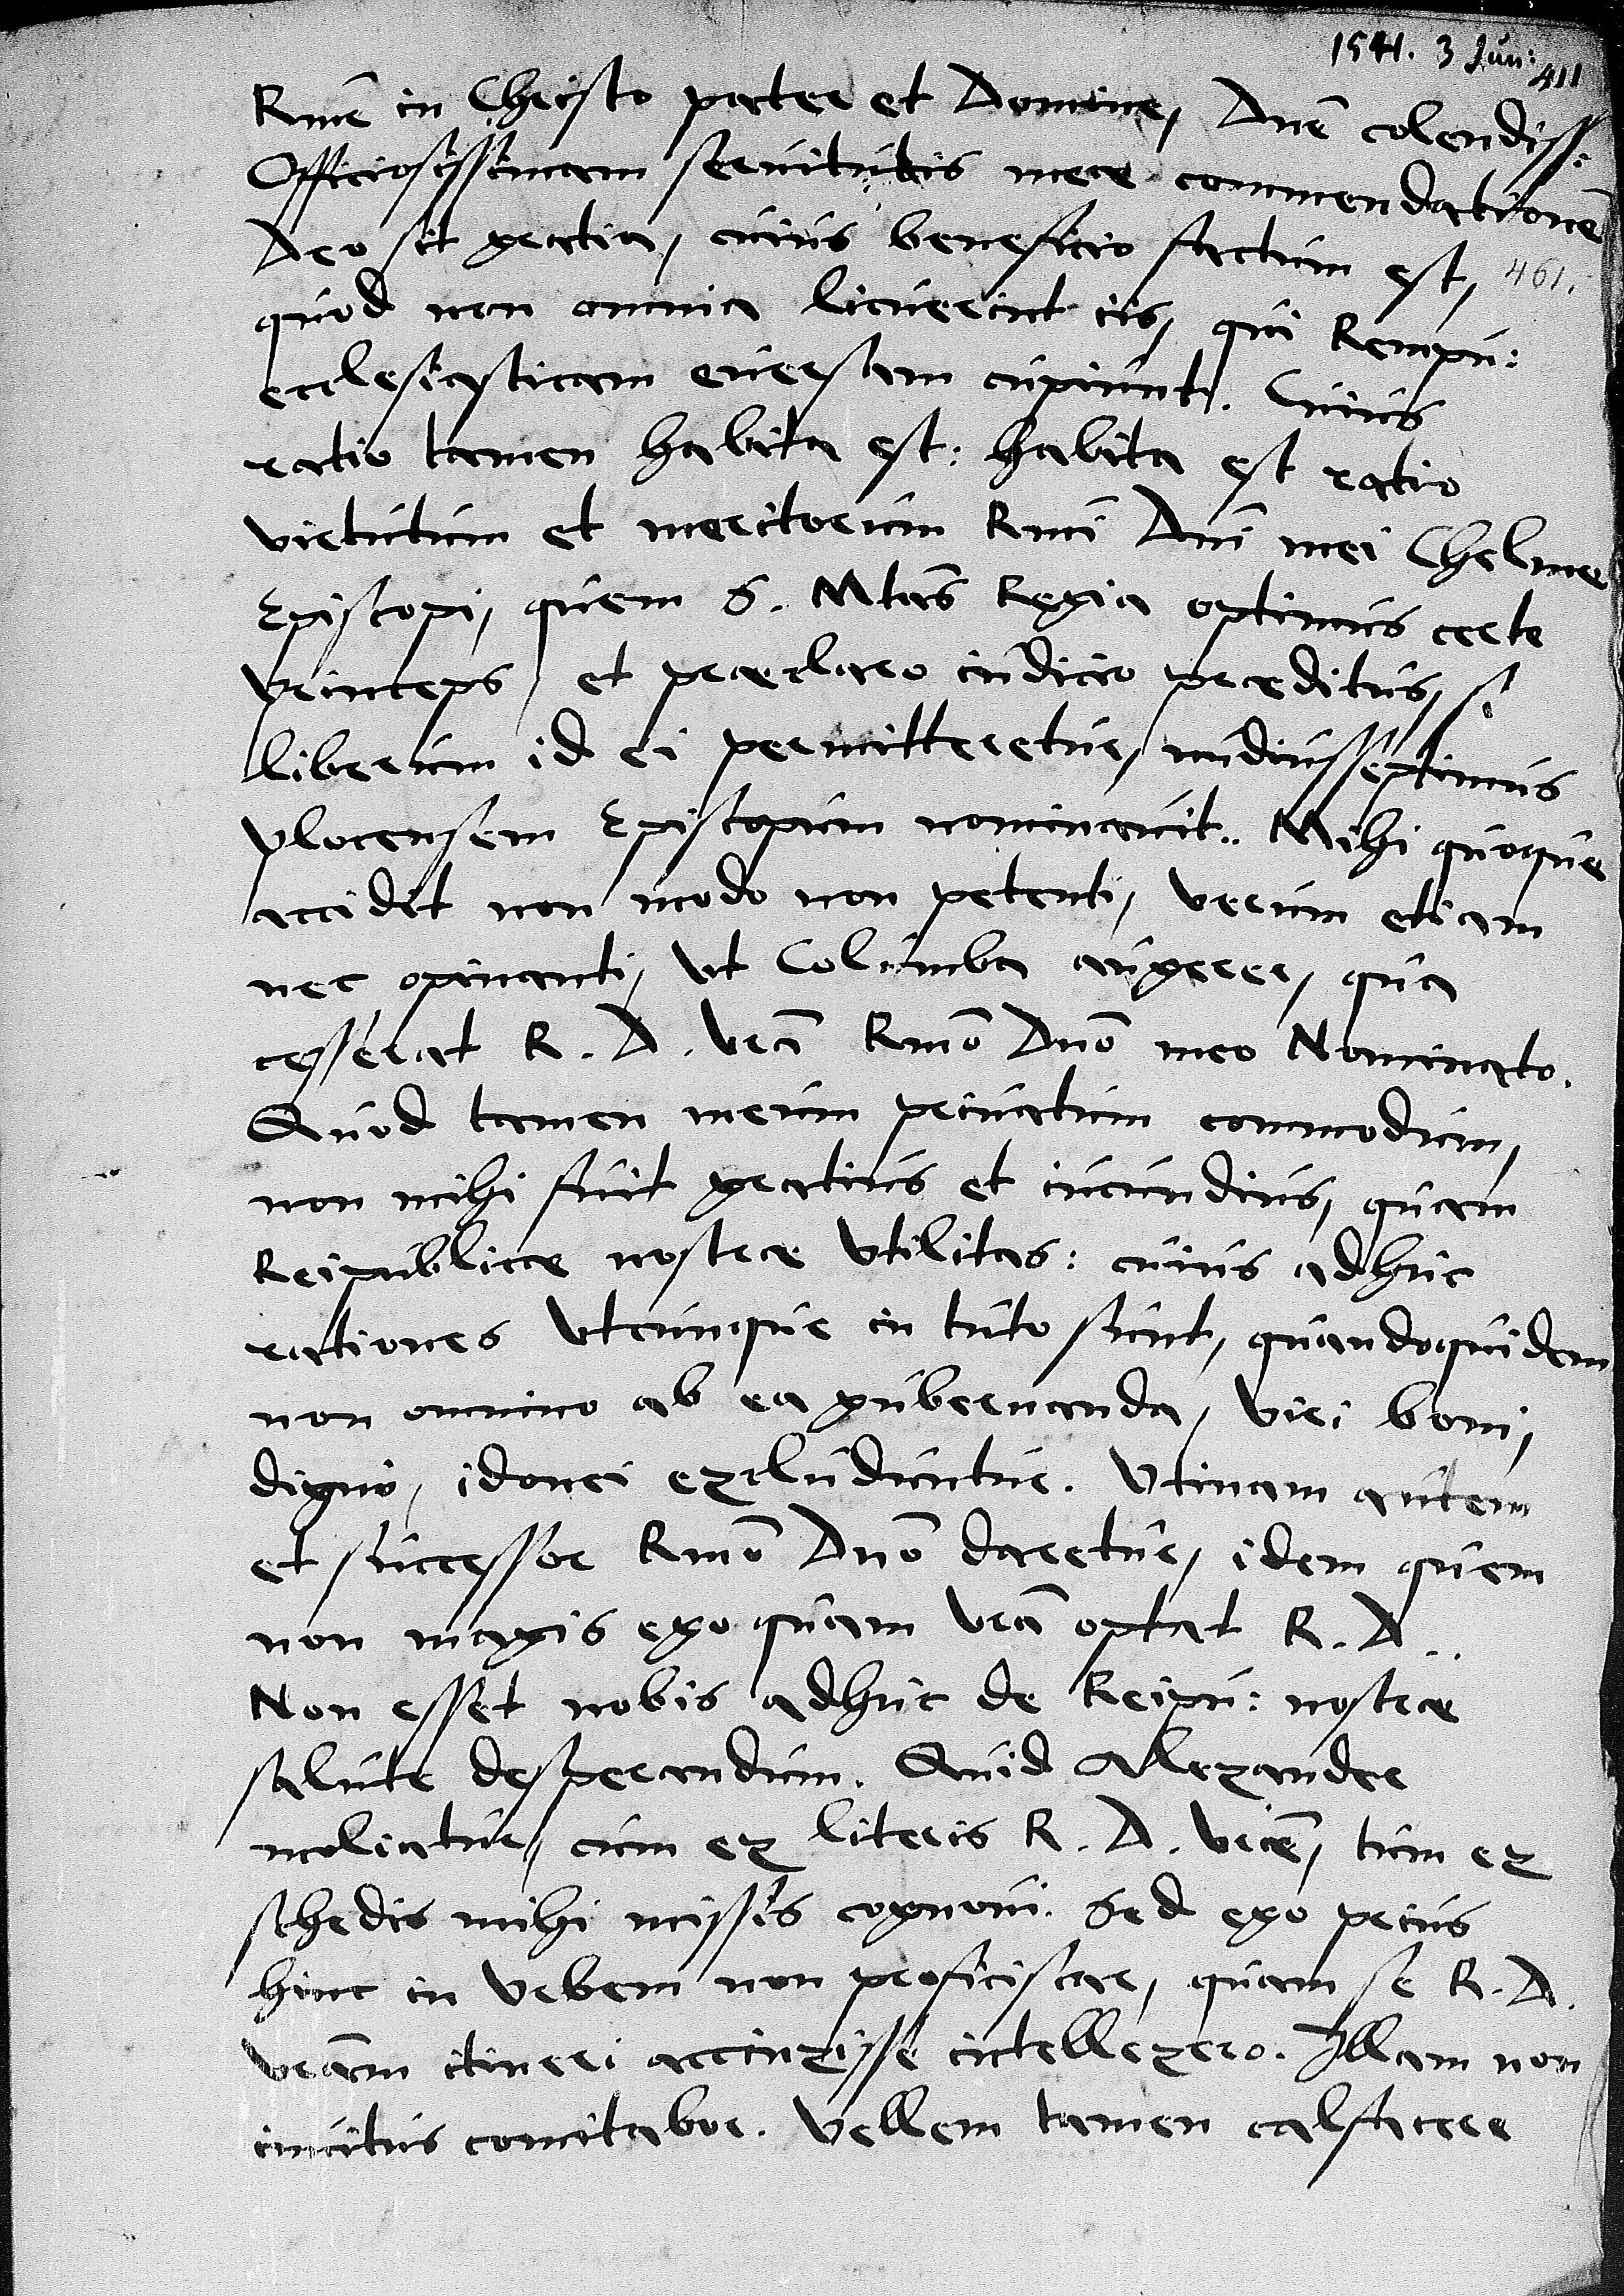 1541. 3 Jun:
411
Rme in Christo pater et Domine, Dne colendiss:
Officiosissimam servitutis mee commendationem
Deo sit gratia, cuius beneficio factum est,
461.
quod non omnia licuerint iis, qui Rempu:
ecclesiasticam eversam cupiunt. Cuius
ratio tamen habita est: habita est ratio
virtutum et meritorum Rmi Dni mei Chelme
Episcopi, quem S. Mtas Regia optimus certe
princeps, et preclaro iudicio preditus, si
liberum id ei permitteretur, nudiusseptimus
plocensem Episcopum nominavit. Mihi quoque
accidit non modo non petenti, verum etiam
nec opinanti, ut Columba augerer, qua
cesserat R. D. vra Rmo Dno meo Nominato.
Quod tamen meum privatum commodum,
non mihi fuit gratius et iucundius, quam
Reipublice nostre utilitas: cuius adhuc
rationes utcunque in tuto sunt, quandoquidem
non omnino ab ea gubernanda, viri boni,
digni, idonei excluduntur. Utinam autem
et successor Rmo Dno daretur, idem quem
non magis ego quam vra optat R. D.
Non esset nobis adhuc de Reipu: nostre
salute desperandum. Quid Alexander
moliatur, cum ex literis R. D. vre, tum ex
schedis mihi missis cognovi. Sed ego prius
hinc in Urbem non proficiscar, quam se R. D.
vram itineri accinxisse intellexero. Illam non
invitus comitabor. Vellem tamen calfacere